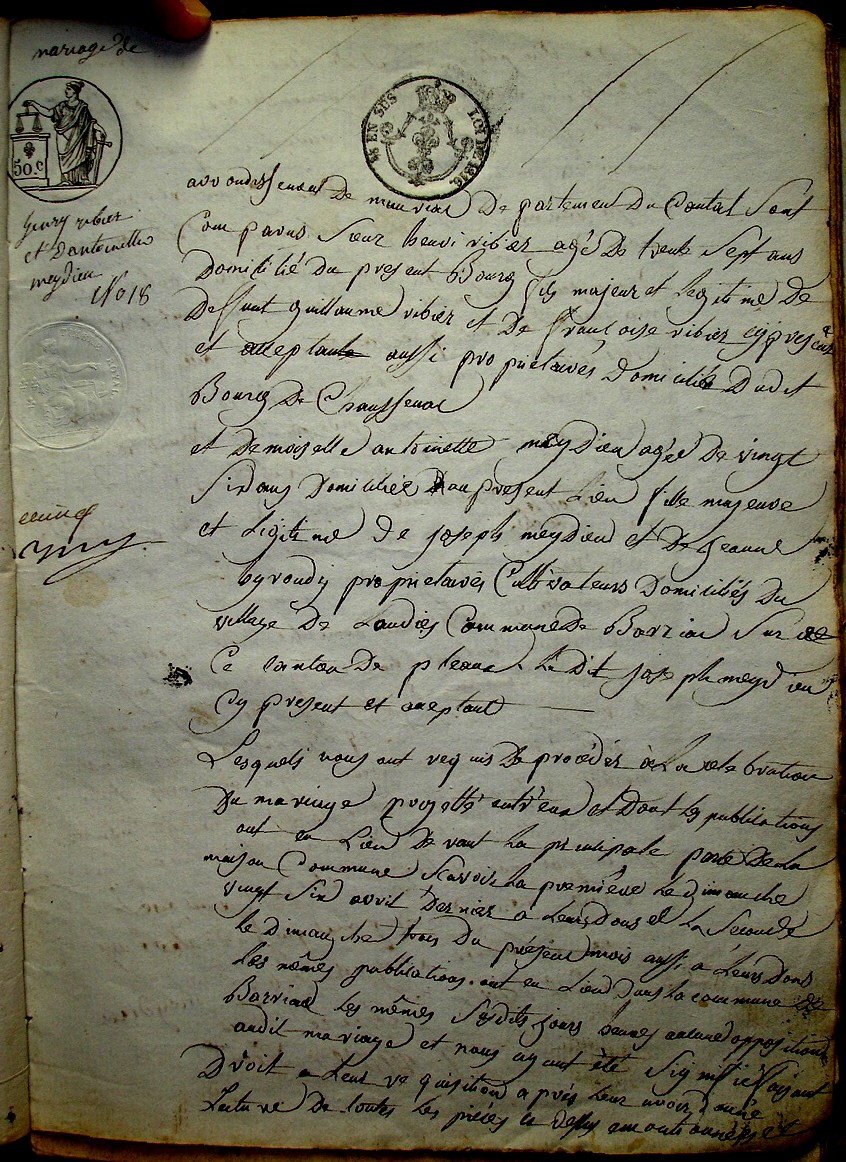 mariage de
50 c
EN SUS
LOI DE 1816
henry ribier
et d'antoinette
meydieu
N° 18
arrondissement De mauriac De partement Du Cantal Sont
Comparus Sieur henri ribier agé De trente Sept ans
Domicilié Du present Bourg fils majeur et legitime de
Deffunt guillaume ribier et De françoise ribier cy presente
et acceptante aussi proprietaires Domiciliés Dudit
Bourg De Chaussenac
et Demoiselle antoinette meydieu agée De vingt
Six ans Domiciliée au present Lieu fille majeure
et Legitime De joseph meydieu et De jeanne
proprietaires Cultivateurs Domiciliés Du
village De Commune De Barriac Sur
Ce canton De pleaux Le Dit joseph meydieu
Cy present et aceptant
Lesquels nous ont requis De procéder à La celebration
Du mariage projetté entr'eux et Dont les publications
ont eu Lieu De vant La principale porte De La
maison Commune Scavoir La première Le Dimanche
vingt Six avril Dernier a leurs Dons et La Seconde
le Dimanche trois Du présent mois aussi a leurs Dons
Les mêmes publications ont eu Lieu Dans La commune De
Barriac les mêmes Sesdits jours heures aucune opposition
audit mariage et nous ayant été Signiffié faisant
Droit a Leur requisition après Leur avoir Donné
Lecture De toutes Les pièces ci Dessus mentionnées et